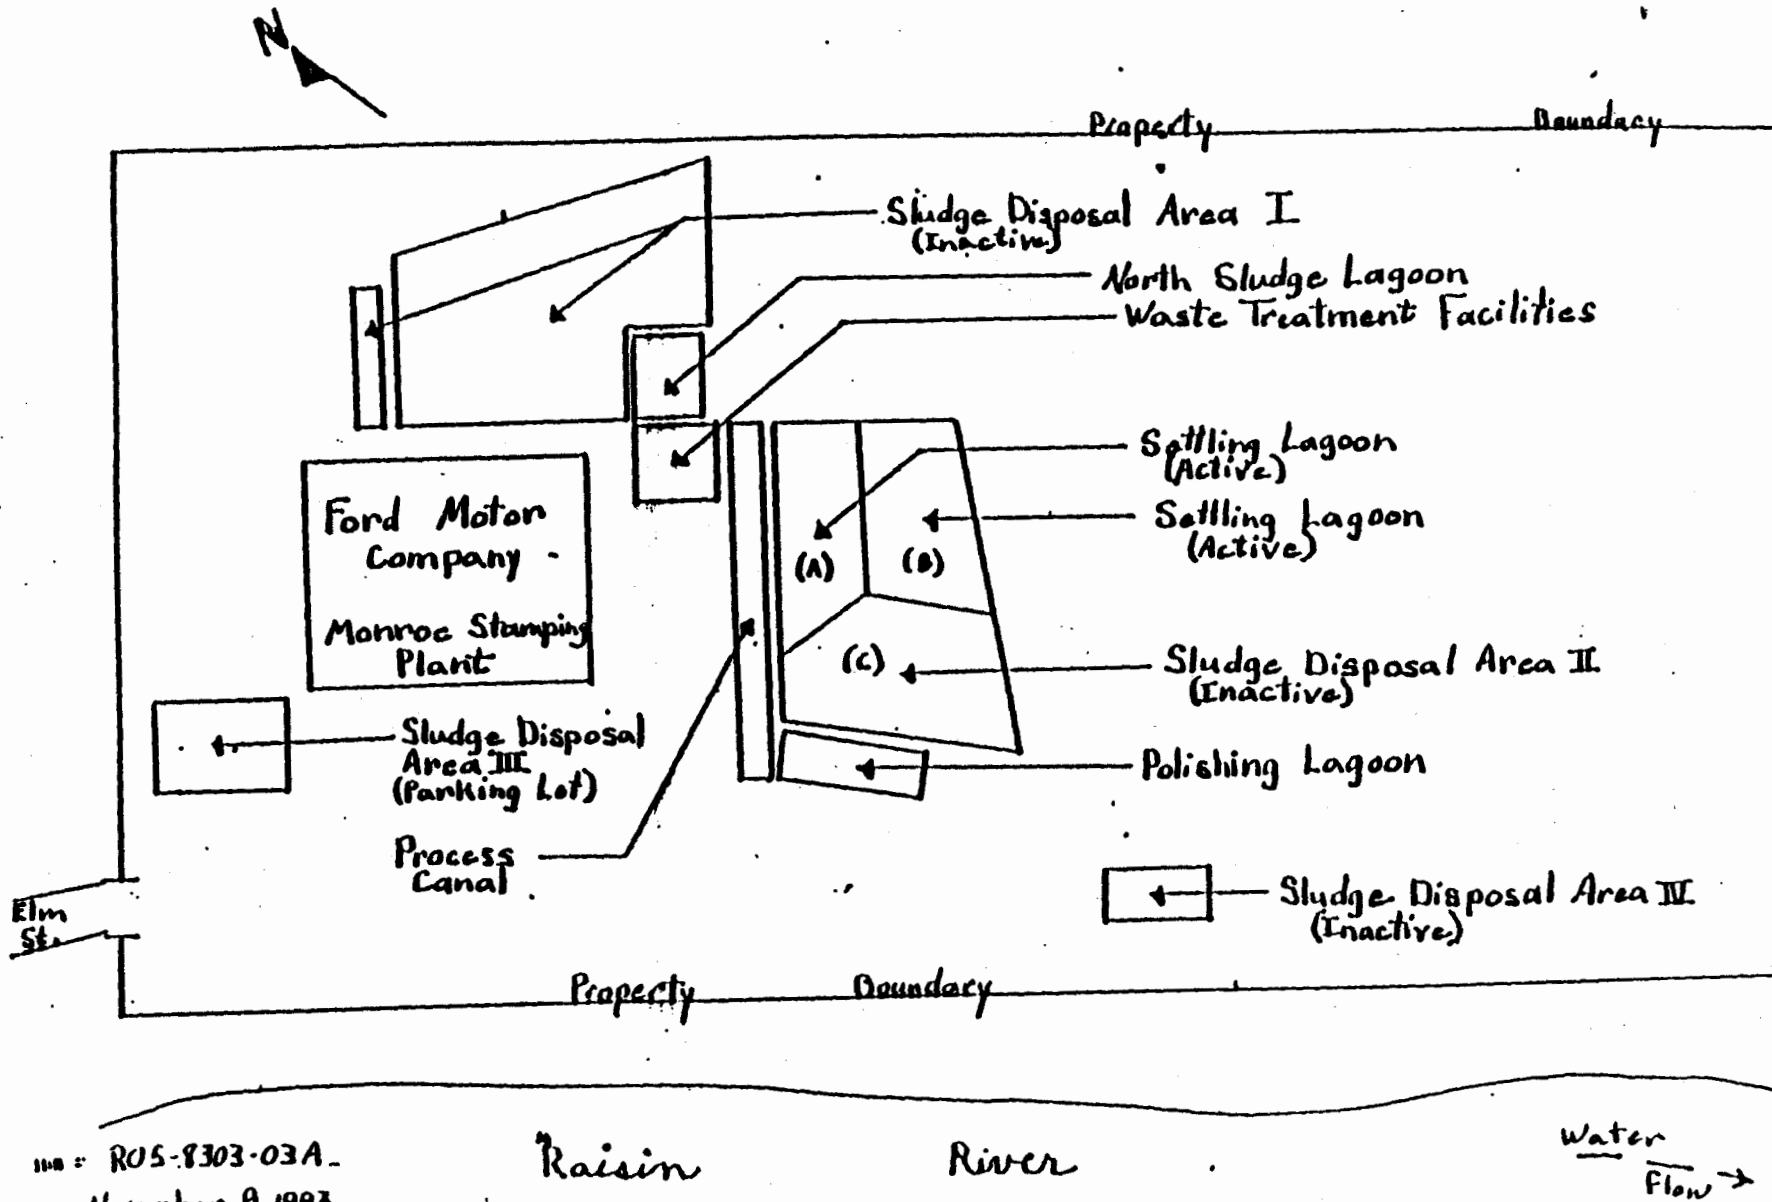 N
Property Boundary
Sludge Disposal Area I
(Inactive)
North Sludge Lagoon
Waste Treatment Facilities
Settling Lagoon
(Active)
Settling Lagoon
(Active)
Ford Motor
Company
Monroe Stamping
Plant
(A)
(B)
(C)
Sludge Disposal Area II
(Inactive)
Sludge Disposal
Area III
(Parking Lot)
Polishing Lagoon
Process
Canal
Sludge Disposal Area IV
(Inactive)
Elm
St.
Property Boundary
Raisin River
Water
Flow
R05-8303-03A